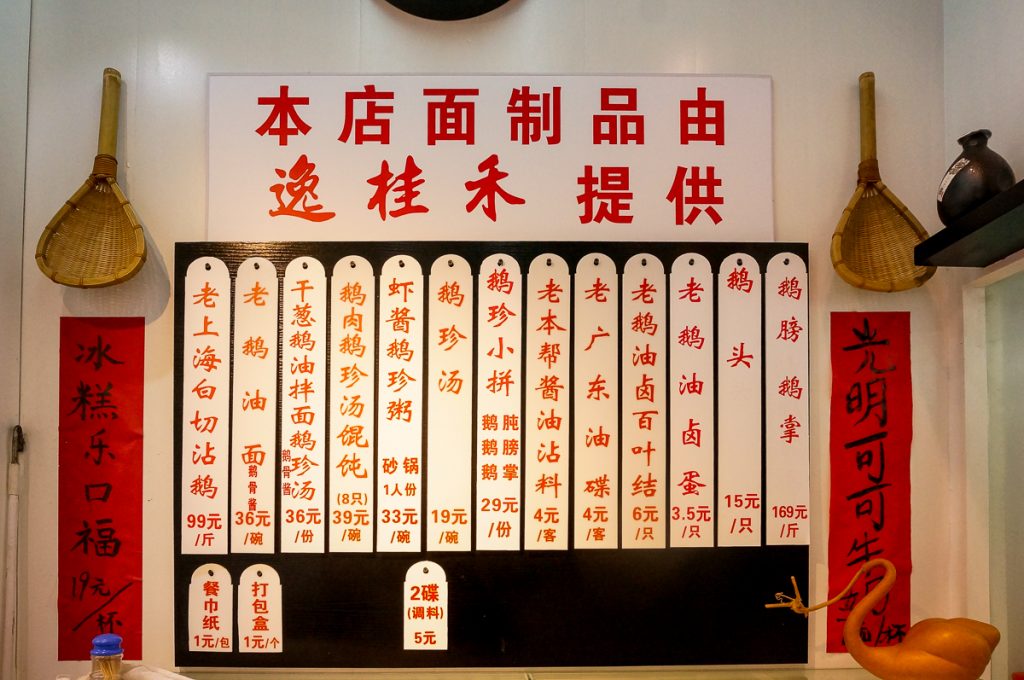 本店面制品由
逸桂禾 提供
冰糕乐口福
19元/杯
老上海白切沾鹅
99元/斤
老鹅油面
鹅骨酱
36元/碗
干葱鹅油拌面鹅珍汤
鹅骨酱
36元/份
鹅肉鹅珍汤馄饨
(8只)
39元/碗
虾酱鹅珍粥
砂锅
1人份
33元/碗
鹅珍汤
19元/碗
鹅珍小拼
鹅肫
鹅膀
鹅掌
29元/份
老本帮酱油沾料
4元/客
老广东油碟
4元/客
老鹅油卤百叶结
6元/只
老鹅油卤蛋
3.5元/只
鹅头
15元/只
鹅膀鹅掌
169元/斤
光明可可牛
杯
餐巾纸
1元/包
打包盒
1元/个
2碟
(调料)
5元